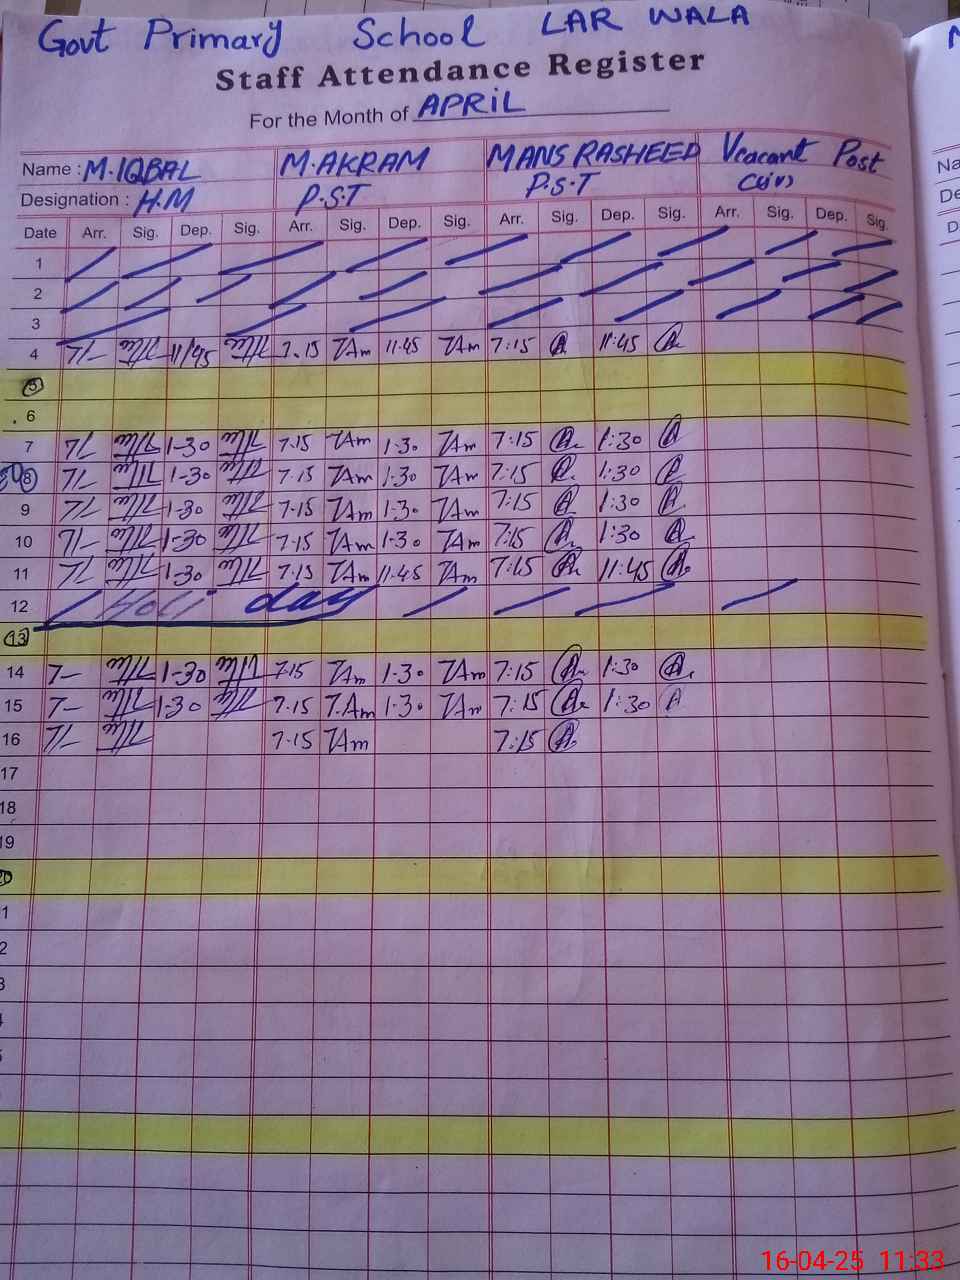 Govt Primary School LAR WALA
Staff Attendance Register
For the Month of APRiL
Name : M.IQBAL M.AKRAM MANS RASHEED Vcacant Post
Designation : H.M P.S.T P.S.T
Date Arr. Sig. Dep. Sig. Arr. Sig. Dep. Sig. Arr. Sig. Dep. Sig. Arr. Sig. Dep. Sig.
1
2
3
4 11/45 7.15 11:45 7:15 11:45
5
6
7 1-30 7.15 1-30 7:15 1:30
8 1-30 7.15 1-30 7:15 1:30
9 1-30 7.15 1-30 7:15 1:30
10 1-30 7.15 1-30 7:15 1:30
11 1-30 7.15 11.45 7:15 11:45
12 Holi day
13
14 7- 1-30 7.15 1-30 7:15 1:30
15 7- 1-30 7.15 1-30 7:15 1:30
16 7.15 7:15
17
18
19
20
1
2
3
16-04-25 11:33